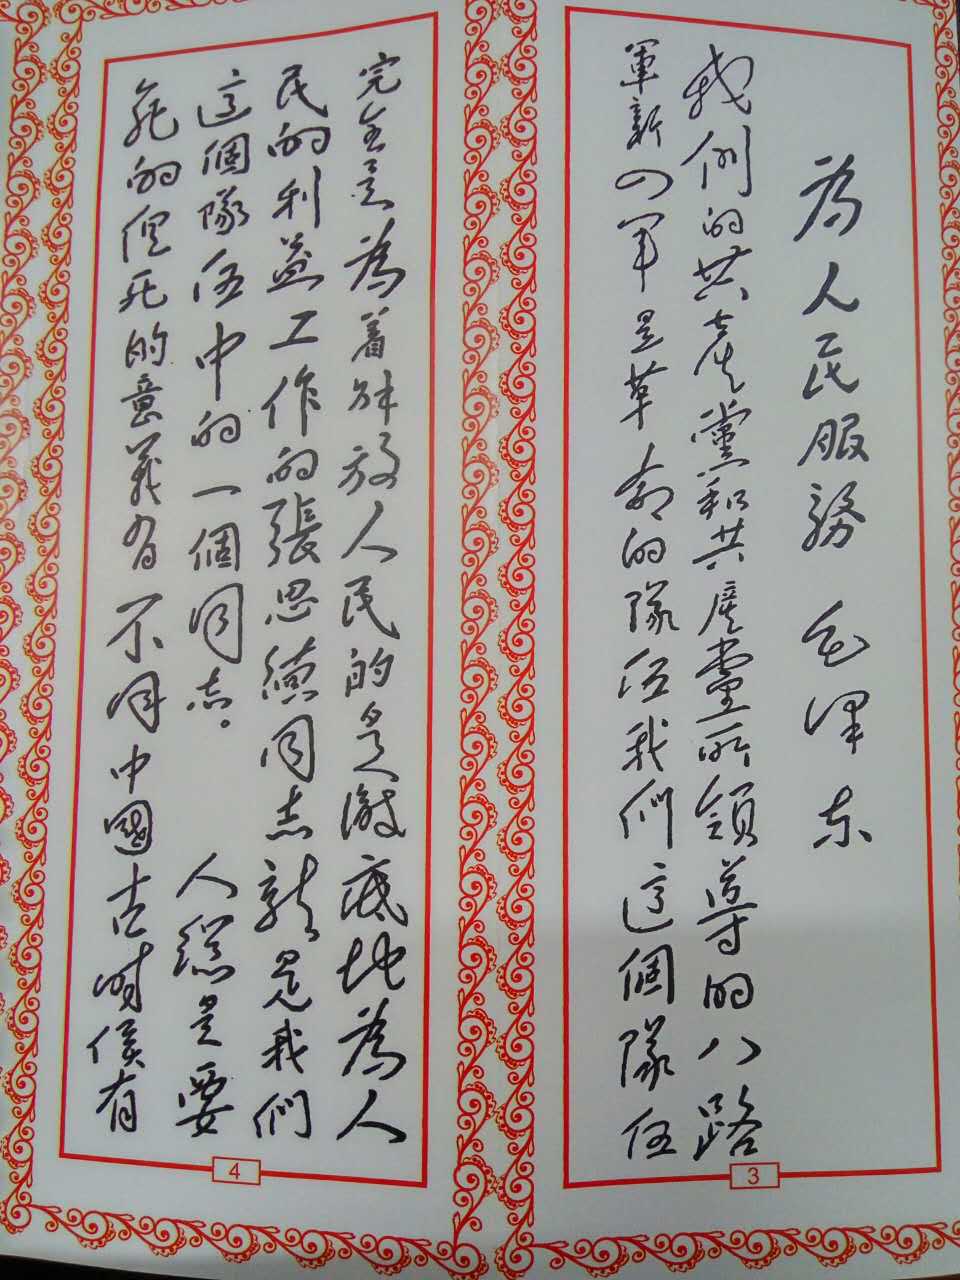 為人民服務 毛澤东
我们的共产黨和共産黨所領導的八路
軍新四军是革命的隊伍我們這個隊伍
3
完全是為着解放人民的是澈底地為人
民的利益工作的張思德同志就是我們
這個隊伍中的一個同志。 人總是要
死的但死的意義有不同中國古時候有
4